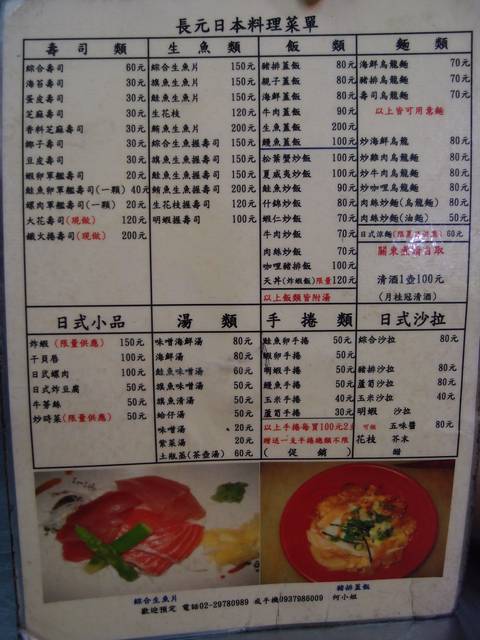 長元日本料理菜單
壽司類
綜合壽司 60元
海苔壽司 30元
蛋皮壽司 30元
芝麻壽司 30元
香料芝麻壽司 30元
椰子壽司 30元
豆皮壽司 30元
蝦卵軍艦壽司 20元
鮭魚卵軍艦壽司(一顆) 40元
螺肉軍艦壽司(一顆) 20元
大花壽司(現做) 120元
鐵火捲壽司(現做) 200元
生魚類
綜合生魚片 150元
旗魚生魚片 150元
鮭魚生魚片 150元
生花枝 120元
鮪魚生魚片 200元
綜合生魚握壽司 150元
旗魚生魚握壽司 150元
鮭魚生魚握壽司 150元
鮪魚生魚握壽司 200元
生花枝握壽司 120元
明蝦握壽司 100元
飯類
豬排蓋飯 80元
親子蓋飯 80元
海鮮蓋飯 80元
牛肉蓋飯 90元
生魚蓋飯 200元
鰻魚蓋飯 100元
松葉蟹炒飯 70元
夏威夷炒飯 70元
鮭魚炒飯 90元
什錦炒飯 80元
蝦仁炒飯 70元
牛肉炒飯 70元
肉絲炒飯 70元
咖哩豬排飯 100元
天丼(炸蝦飯)限量 120元
以上飯類皆附湯
麵類
海鮮烏龍麵 70元
豬排烏龍麵 70元
壽司烏龍麵 70元
以上皆可用意麵
炒海鮮烏龍 80元
炒雞肉烏龍麵 80元
炒牛肉烏龍麵 80元
炒咖哩烏龍麵 80元
肉絲炒麵(烏龍麵) 80元
肉絲炒麵(油麵) 50元
日式涼麵(限夏天供應) 60元
關東煮請自取
清酒1壺100元
(月桂冠清酒)
日式小品
炸蝦(限量供應) 150元
干貝唇 100元
日式螺肉 100元
日式炸豆腐 50元
牛蒡絲 50元
炒時蔬(限量供應) 50元
湯類
味噌海鮮湯 80元
海鮮湯 80元
鮭魚味噌湯 60元
旗魚味噌湯 50元
旗魚清湯 50元
蛤仔湯 50元
味噌湯 20元
紫菜湯 20元
土瓶蒸(茶壺湯) 60元
手捲類
鮭魚卵手捲 50元
蝦卵手捲 50元
明蝦手捲 50元
鰻魚手捲 50元
玉米手捲 40元
蘆筍手捲 30元
以上手捲每買100元2支
贈送一支手捲總類不限
(促銷)
日式沙拉
綜合沙拉 80元
豬排沙拉 80元
蘆筍沙拉 80元
玉米沙拉 40元
明蝦 沙拉
可做 五味醬 80元
花枝 芥末
醋
綜合生魚片
豬排蓋飯
歡迎預定 電話02-29780989 或手機0937986009 何小姐